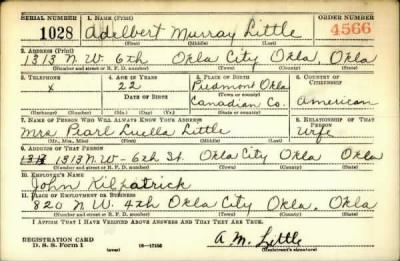 SERIAL NUMBER 1. NAME (Print) ORDER NUMBER
1028 Adelbert Murray Little 4566
(First) (Middle) (Last)
2. ADDRESS (Print)
1313 N.W. 6th Okla City Okla, Okla
(Number and street or R. F. D. number) (Town) (County) (State)
3. TELEPHONE 4. AGE IN YEARS 5. PLACE OF BIRTH 6. COUNTRY OF CITIZENSHIP
x 22 Piedmont Okla
DATE OF BIRTH (Town or county)
Canadian Co. American
(Exchange) (Number) (Mo.) (Day) (Yr.) (State or country)
7. NAME OF PERSON WHO WILL ALWAYS KNOW YOUR ADDRESS 8. RELATIONSHIP OF THAT PERSON
Mrs Pearl Luella Little Wife
(Mr., Mrs., Miss) (First) (Middle) (Last)
9. ADDRESS OF THAT PERSON
1313 N.W-6th St. Okla City Okla Okla
(Number and street or R. F. D. number) (Town) (County) (State)
10. EMPLOYER'S NAME
John Kilpatrick
11. PLACE OF EMPLOYMENT OR BUSINESS
820 N.W. 4th Okla City Okla. Okla
(Number and street or R. F. D. number) (Town) (County) (State)
I AFFIRM THAT I HAVE VERIFIED ABOVE ANSWERS AND THAT THEY ARE TRUE.
REGISTRATION CARD
D. S. S. Form 1 (over) 16-17105 A.M. Little
(Registrant's signature)